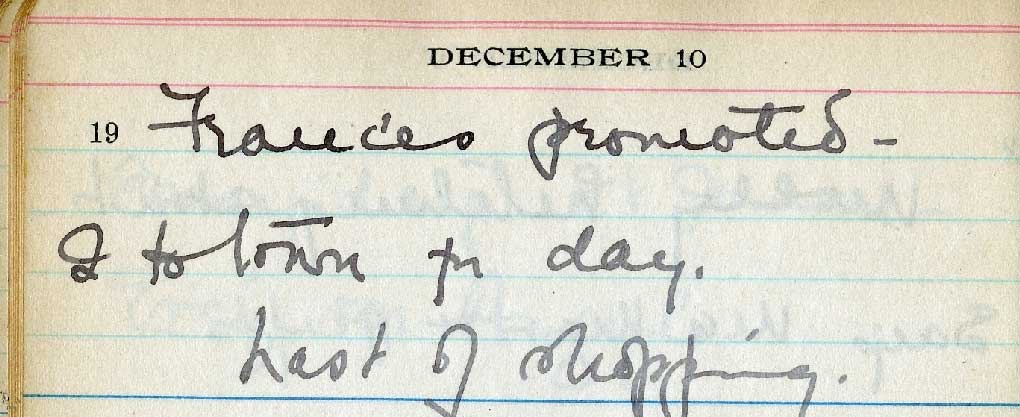 DECEMBER 10
19 Frances promoted -
I to town for day.
Last of shopping.